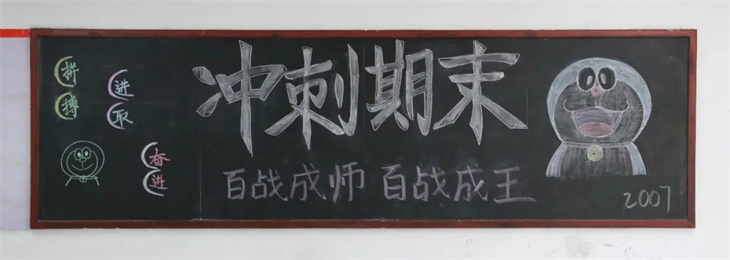 拼搏
进取
奋进
冲刺期末
百战成师 百战成王
2007